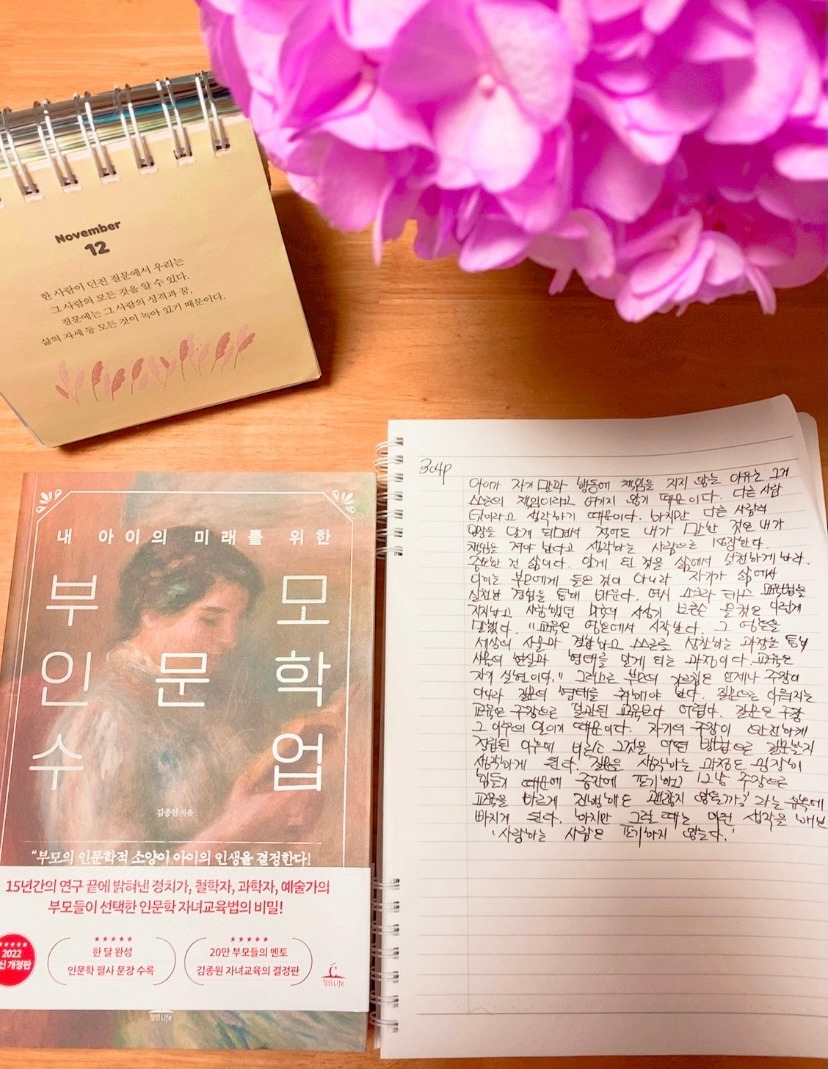 November
12
한 사람이 던진 질문에서 우리는
그 사람의 모든 것을 알 수 있다.
질문에는 그 사람의 성격과 꿈,
삶의 자세 등 모든 것이 녹아 있기 때문이다.
내 아이의 미래를 위한
부모
인문학
수업
김종원 지음
"부모의 인문학적 소양이 아이의 인생을 결정한다!
15년간의 연구 끝에 밝혀낸 정치가, 철학자, 과학자, 예술가의
부모들이 선택한 인문학 자녀교육법의 비밀!
2022
개정판
한 달 완성
인문학 필사 문장 수록
20만 부모들의 멘토
김종원 자녀교육의 결정판
청림Life
304p
아이가 자기 말과 행동에 책임을 지지 않는 이유는 그게
스스로의 책임이라고 여기지 않기 때문이다. 다른 사람
탓이라고 생각하기 때문이다. 하지만 다른 사람의
말을 알게 되면서 점점 내가 말한 것은 내가
책임을 져야 한다고 생각하는 사람으로 성장한다.
중요한 건 삶이다. 알게 된 것을 삶에서 실천하게 하라.
아이는 부모에게 들은 것이 아니라 자기가 삶에서
실천한 경험을 통해 배운다.
말했다. "교육은 영혼에서 시작한다. 그 영혼을
세상의 사물과 결합하고 스스로 성찰하는 과정을 통해
사물의 현실과 형태를 알게 되는 과정이다. 교육은
자기 실현이다." 그러므로 부모의 가르침은 언제나 주장이
아니라 질문의 형태를 취해야 한다. 질문으로 이루어지는
교육은 주장으로 일관된 교육보다 어렵다. 질문은 주장
그 이후의 일이기 때문이다. 자기의 주장이 완전하게
정립된 이후에 비로소 그것을 어떤 방법으로 질문할지
생각하게 된다. 질문을 생각하는 과정은 굉장히
힘들기 때문에 중간에 포기하고 '그냥 주장으로
교육을 빠르게 진행해도 괜찮지 않을까?'라는 유혹에
빠지게 된다. 하지만 그럴 때는 이런 생각을 해보
'사랑하는 사람은 포기하지 않는다.'